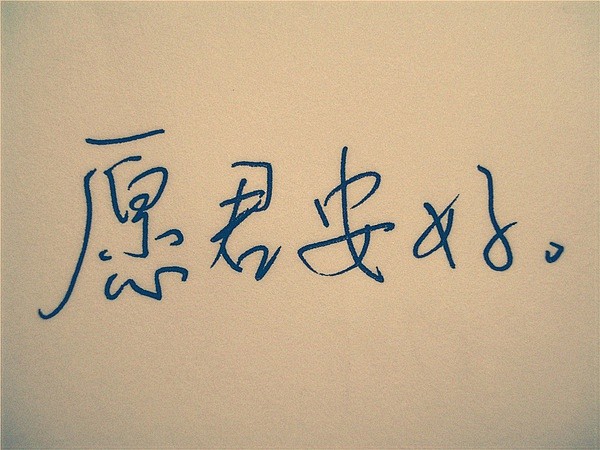 愿君安好。